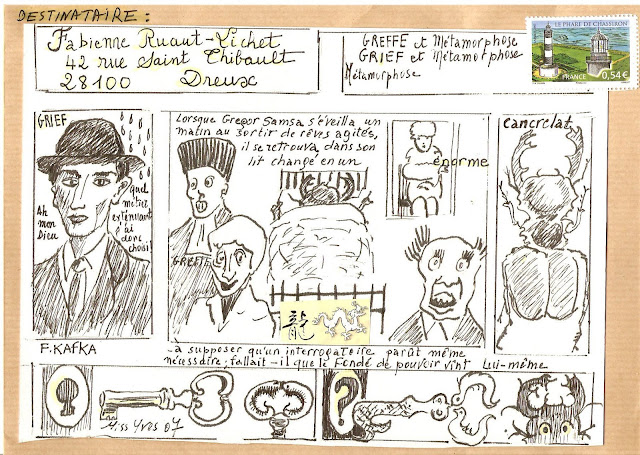 DESTINATAIRE :
Fabienne Ruaut-Lichet
42 rue Saint Thibault
28100 Dreux
GREFFE et Métamorphose
GRIEF et Métamorphose
Métamorphose
LE PHARE DE CHASSIRON
FRANCE 0,54€
GRIEF
Ah
mon
Dieu
quel
métier
exténuant
j'ai
donc
choisi!
F. KAFKA
Lorsque Gregor Samsa s'éveilla un
matin au sortir de rêves agités,
il se retrouva, dans son
lit changé en un
énorme
cancrelat
GREFFE
龍
à supposer qu'un interrogatoire parût même
nécessaire; fallait-il que le Fondé de pouvoir vînt lui-même
?
Miss Yves 07